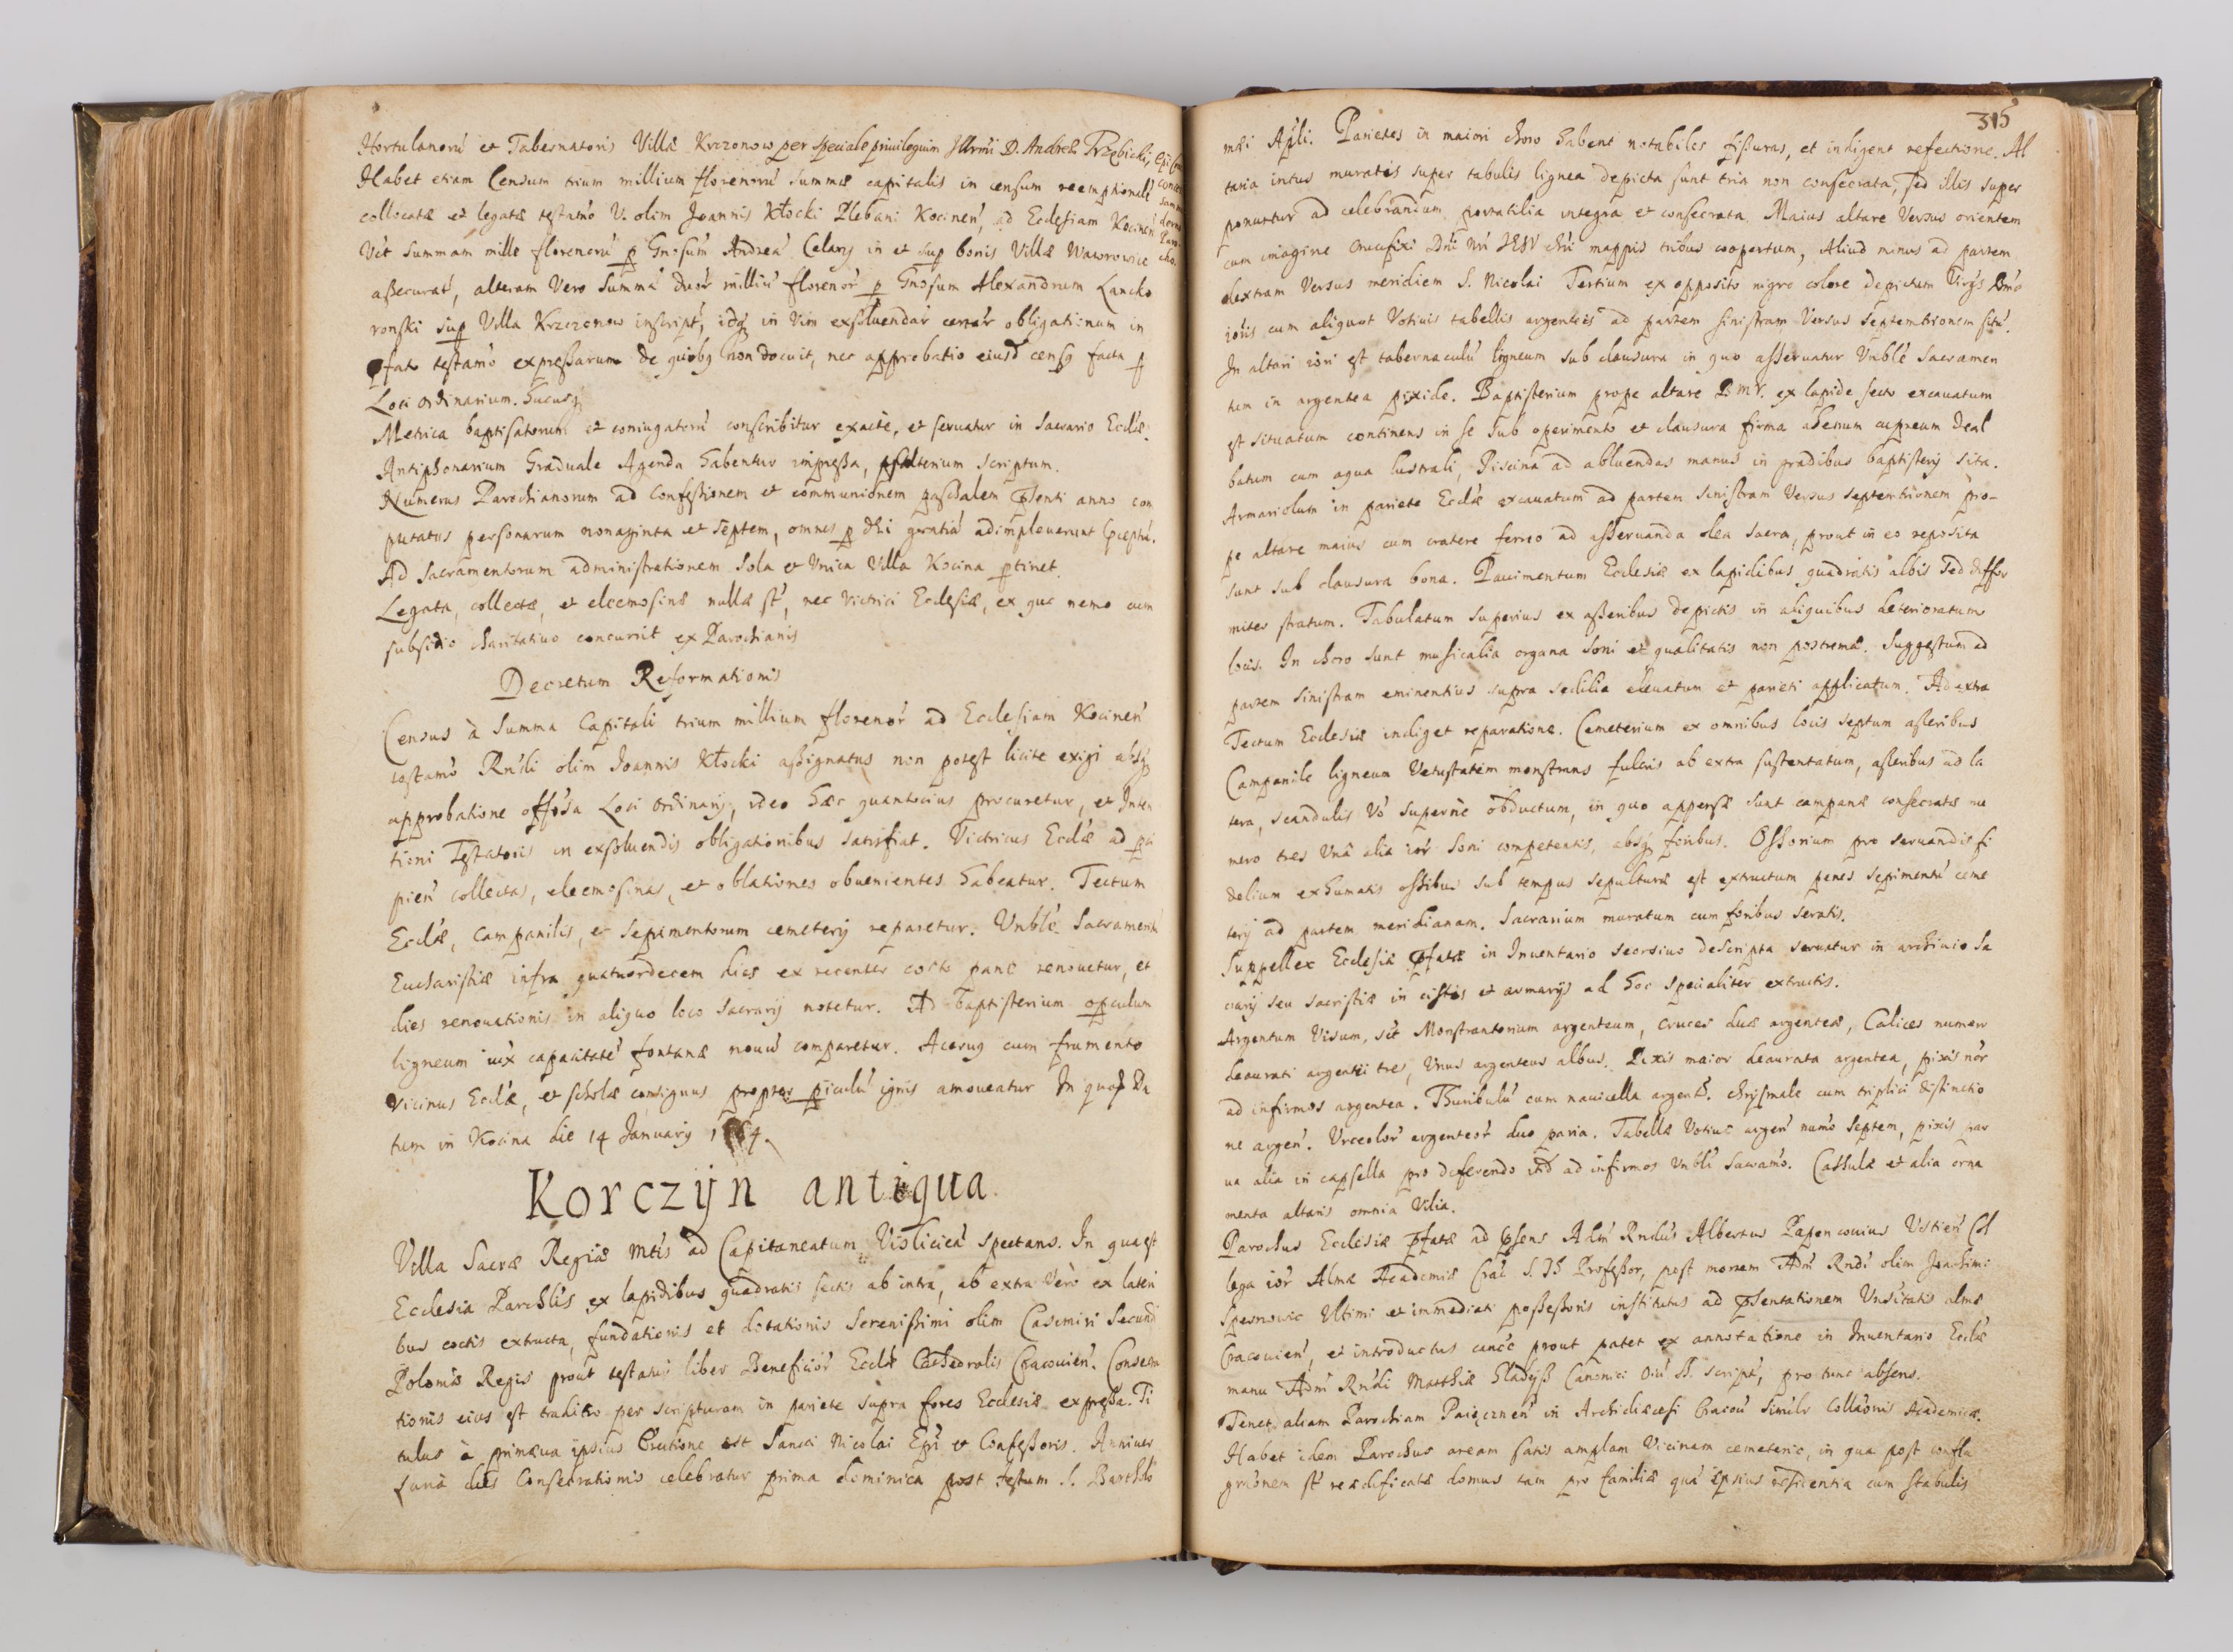 Hortulanorũ et Tabernatoris Villæ Krczonow per speciale privilegium Illrmi D. Andreæ Trzebicki Epi
Habet etiam Censum trium millium florenorũ summæ capitalis in censum reemptionalẽ
collocatæ et legatæ testamo V. olim Joannis Kłocki Plebani Kocinen, ad Ecclesiam Kocinen
Vit Summam mille florenorũ p Gnosum Andreã Celary in et sup bonis Villæ Waworowice
asseurat, alteram Vero summã duor milliũ florenor p Gnosum Alexandrum Lancko
ronski sup Villa Krzczonow inscript, idq in Vim exsoluendar certar obligationum in
pfato testamo expressarum de quibq non docuit, nec approbatio eiusd censq facta p
Loci Ordinarium. hucusq
Metrica baptisatorum et coniugatorũ conscribitur exacte, et seruatur in Sacrario Ecclæ.
Antiphonarium Graduale Agenda habentur impressa, psalterium scriptum.
Numerus Parochianorum ad Confessionem et communionem paschalem psenti anno com
putatus personarum nonaginta et septem, omnes p dei gratiã adimpleuerunt pceptũ.
Ad Sacramentorum administrationem sola et Unica Villa Kocina ptinet.
Legata, collectæ, et eleemosinæ nullæ st, nec victrici Ecclesiæ, ex quo nemo cum
subsidio charitatiuo concurrit ex Parochianis
Decretum Reformationis
Census à Summa Capitali trium millium florenor ad Ecclesiam Kocinen
testamo Rndi olim Joannis Kłocki assignatus non potest licite exigi absq
approbatione offosa Loci Ordinarij, ideo hæc quantocius procuretur, et Inten
tioni Testatoris in exsoluendis obligationibus satisfiat. Victricus Ecclæ ad pci
pien collectas, eleemosinas, et oblationes obuenientes habeatur. Tectum
Ecclæ, Campanilis, et Sepimentorum cemeterij reparetur. Vnblẽ Sacrament
Eucharistiæ infra quatuordecem dies ex recenter cocto pane renouetur, et
dies renouationis in aliquo loco sacrarij notetur. Ad baptisterium opculum
ligneum iux capacitatẽ fontanæ nouũ comparetur. Aceruq cum frumento
Vicinus Ecclæ, et scholæ contiguus propter piculũ ignis amoueatur In quoq Da
tum in Kocina die 14 January
Korczyn antiqua
Villa Sacræ Regiæ Mtis ad Capitaneatum Visliciẽ spectans. In qua est
Ecclesia Parchlis ex lapidibus quadratis sectis ab intra, ab extra Verò ex lateri
bus coctis extructa, fundationis et dotationis Serenissimi olim Casimiri Secundi
Poloniæ Regis prout testatur liber Beneficior Ecclæ Cathedralis Cracouien. Consecra
tionis eius est traditio per scripturam in pariete supra fores Ecclesiæ expressa. Ti
tulus à primæua ipsius Erectione est Sancti Nicolai Epi et Confessoris. Anniuer
saria dies Consecrationis celebratur prima dominica post festum S. Bartholo
315
mæi Apli. Parietes in maiori choro habent notabiles fissuras, et indigent refectione. Al
taria intus muratis super tabulis lignea depicta sunt tria non consecrata, sed illis super
ponuntur ad celebrandum portatilia integra et consecrata. Maius altare Versus orientem
cum imagine Crucifixi Dni Nri JESV chri mappis tribus coopertum, Aliud minus ad partem
dextram Versus meridiem S. Nicolai Tertium ex opposito nigro colore depictum Virgs
ioris cum aliquot Votiuis tabellis argenteis ad partem sinistram Versus Septemtrionem sitũ.
In altari iori est tabernaculũ ligneum sub clausura in quo asseruatur Vnblẽ Sacramen
tum in argentea pixide. Baptisterium prope altare BMV. ex lapide secto excauatum
est situatum continens in se sub operimento et clausura firma ahenum cupreum deal
batum cum aqua lustrali, Piscina ad abluendas manus in gradibus baptisterij sita.
Armariolum in pariete Ecclæ excauatum ad partem sinistram Versus septemtrionem pro-
pe altare maius cum cratere ferreo ad asseruanda olea sacra, prout in eo reposita
sunt sub clausura bona. Pauimentum Ecclesiæ ex lapidibus quadratis albis sed diffor
miter stratum. Tabulatum superius ex asseribus depictis in aliquibus deterioratum
locis. In choro sunt musicalia organa soni et qualitatis non postremæ. Suggestum ad
partem sinistram eminentius supra sedilia eleuatum et parieti applicatum. Ad extra
Tectum Ecclesiæ indiget reparatione. Cemeterium ex omnibus locis septum asseribus
Campanile ligneum Vetustatem monstrans fulcris ab extra sustentatum, asseribus ad la
tera, scandulis Vo supernè obductum, in quo appensæ sunt campanæ consecratæ nu
mero tres Una alia ior soni competentis, absq foribus. Ossorium pro seruandis fi
delium exhumatis ossibus sub tempus sepulturæ est extructum penes sepimentũ ceme
terij ad partem meridianam. Sacrarium muratum cum foribus seratis.
Suppellex Ecclesiæ pfatæ in Inuentario seorsiuo descripta seruatur in archiuio sa
crarij seu sacristiæ in cistis et armarijs ad hoc specialiter extructis.
Argentum Visum, sct Monstrantorium argenteum, cruces duæ argenteæ, Calices numero
deaurati argentei tres, Unus argenteus albus. Pixis maior deaurata argentea, pixis nor
ad infirmos argentea. Thuribulũ cum nauicella argent. chrismale cum triplici distinctio
ne argen. Vrceolor argenteor duo paria. Tabellæ Votiuæ argen numo septem, pixis par
ua alia in capsella pro deferendo itid ad infirmos Vnbli Sacramo. Cassulæ et alia orna
menta altaris omnia Vilia.
Parochus Ecclesiæ pfatæ ad psens Adm Rndus Albertus Papenconius Ustien Col
lega ior Almæ Academiæ Crac S. Th Professor, post mortem Adm Rndi olim Joachimi
Speronowic Ultimi et immediati possessoris institutus ad psentationem Vnsitatis almæ
Cracouien, et introductus cance prout patet ex annotatione in Inuentario Ecclæ
manu Adm Rndi Matthiæ Gladysz Canonici script, pro tunc absens.
Tenet aliam Parochiam Paięcznen in Archidiæcesi similr Collaonis Academicæ.
Habet idem Parochus aream satis amplam Vicinam cemeterio, in qua post confla
graonem st reædificatæ domus tam pro familia quã ipsius residentia cum stabulis